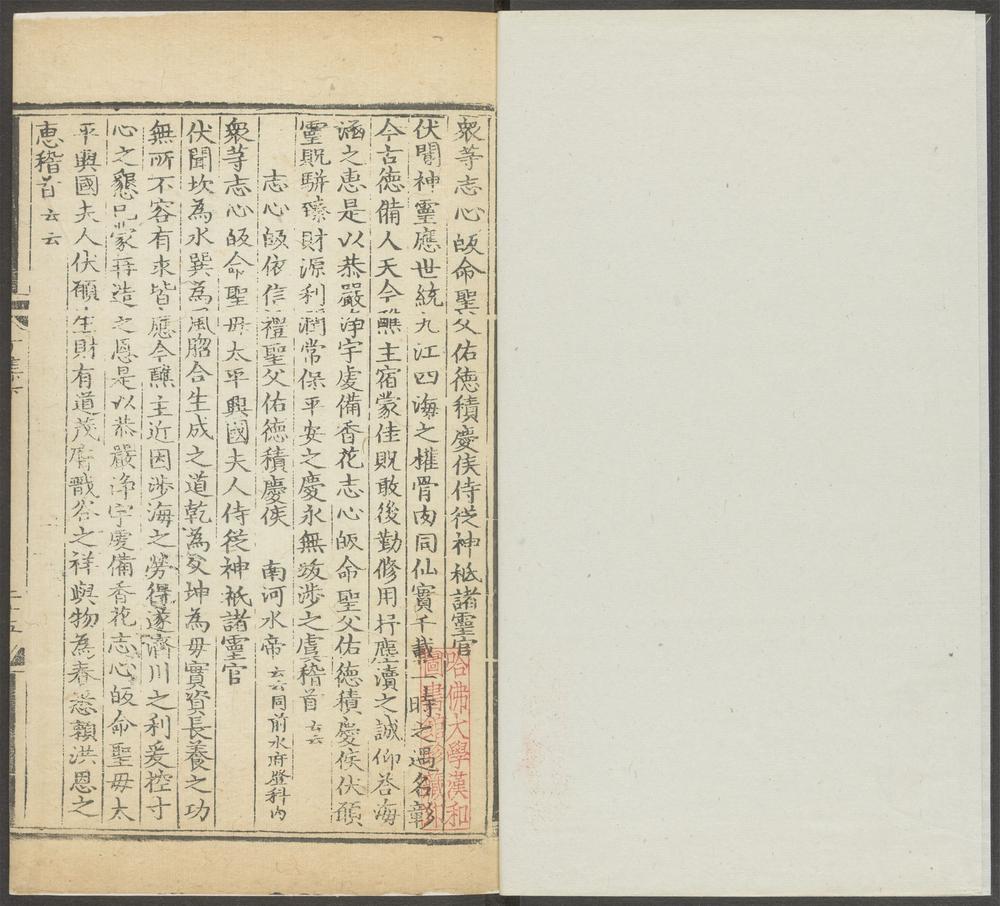 衆等志心皈命聖父佑德積慶侯侍從神祗諸靈官
伏聞神靈應世統九江四海之權骨肉同仙實千載一時之遇名彰
今古德備人天今醮主宿蒙佳貺敢後勤修用抒應瀆之誠仰答海
涵之恵是以恭嚴净宇虔備香花志心皈命聖父佑德積慶侯伏願
靈貺駢臻財源利潤常保平安之慶永無跋涉之虞稽首云云
志心皈依信禮聖父佑德積慶侯 南河水帝云云同前水府醮科内
衆等志心皈命聖毋太平興國夫人侍從神祇諸靈官
伏聞坎為水巽為風脗合生成之道乾為父坤為毋實資長養之功
無所不容有求皆應今醮主近因涉海之勞得遂濟川之利爰控寸
心之懇已蒙再造之恩是以恭嚴淨宇虔備香花志心皈命聖毋太
平興國夫人伏願生財有道茂膺戩谷之祥與物為春悉賴洪恩之
恵稽首云云
哈佛大學漢和
圖書館珍藏印